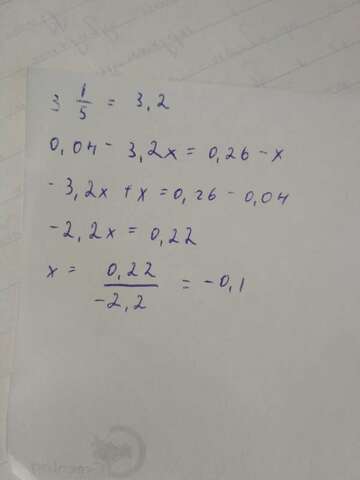 3 1/5 = 3,2
0,04 - 3,2x = 0,26 - x
-3,2x + x = 0,26 - 0,04
-2,2x = 0,22
x = 0,22/-2,2 = -0,1